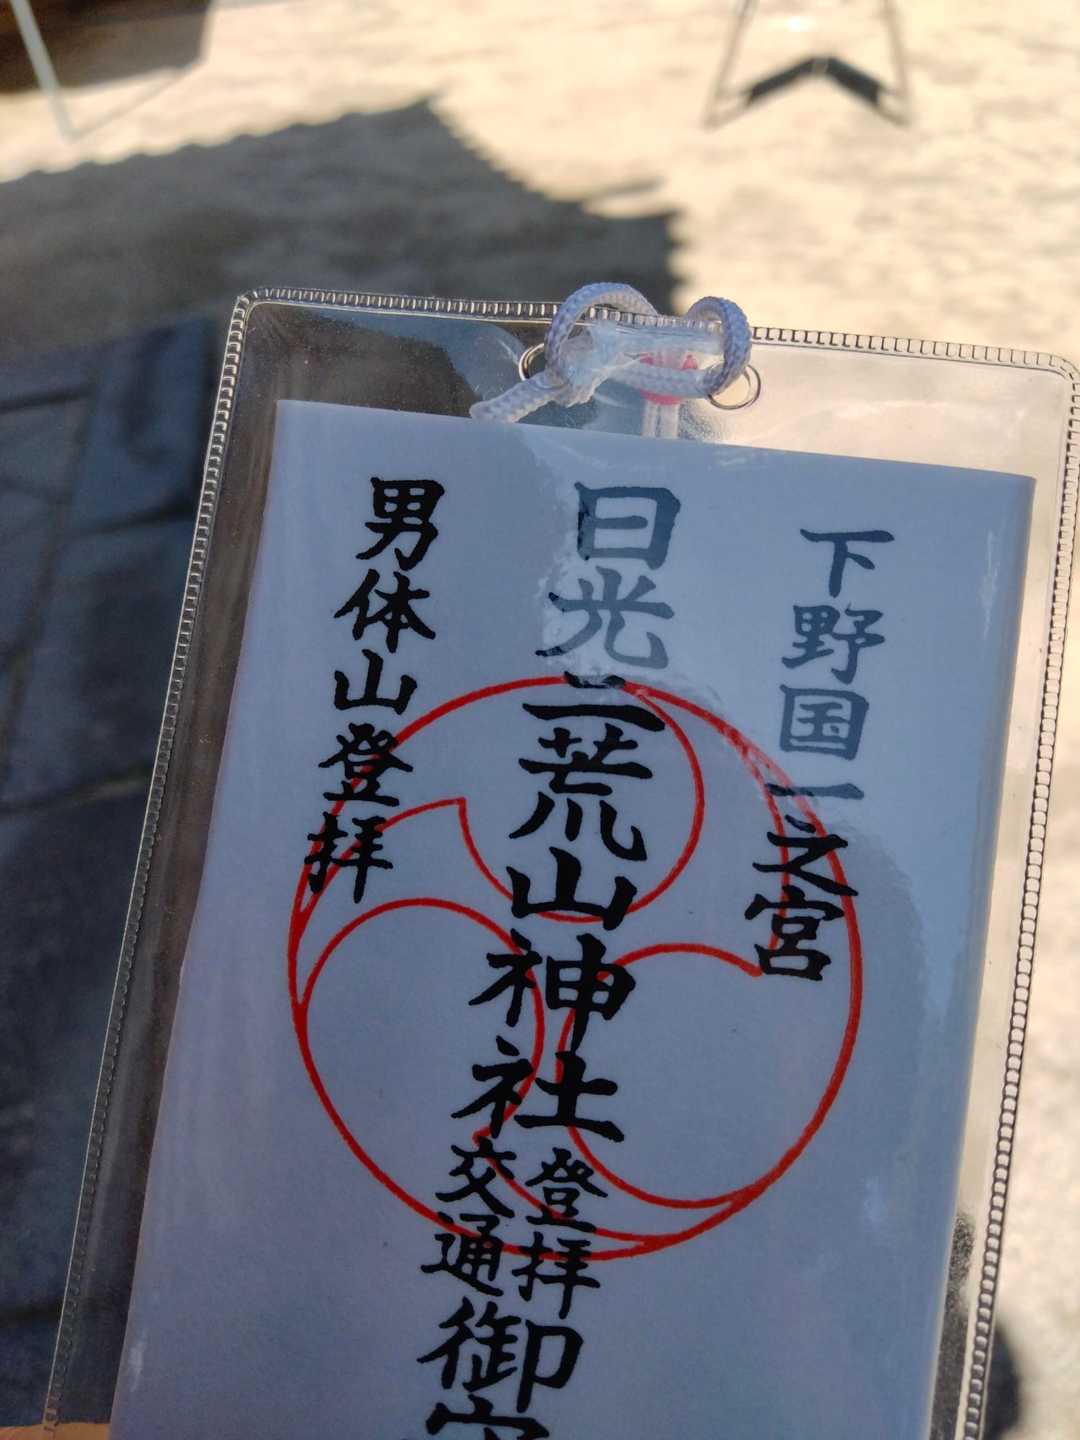 下野国一之宮
日光二荒山神社
登拝
交通
御
男体山登拝